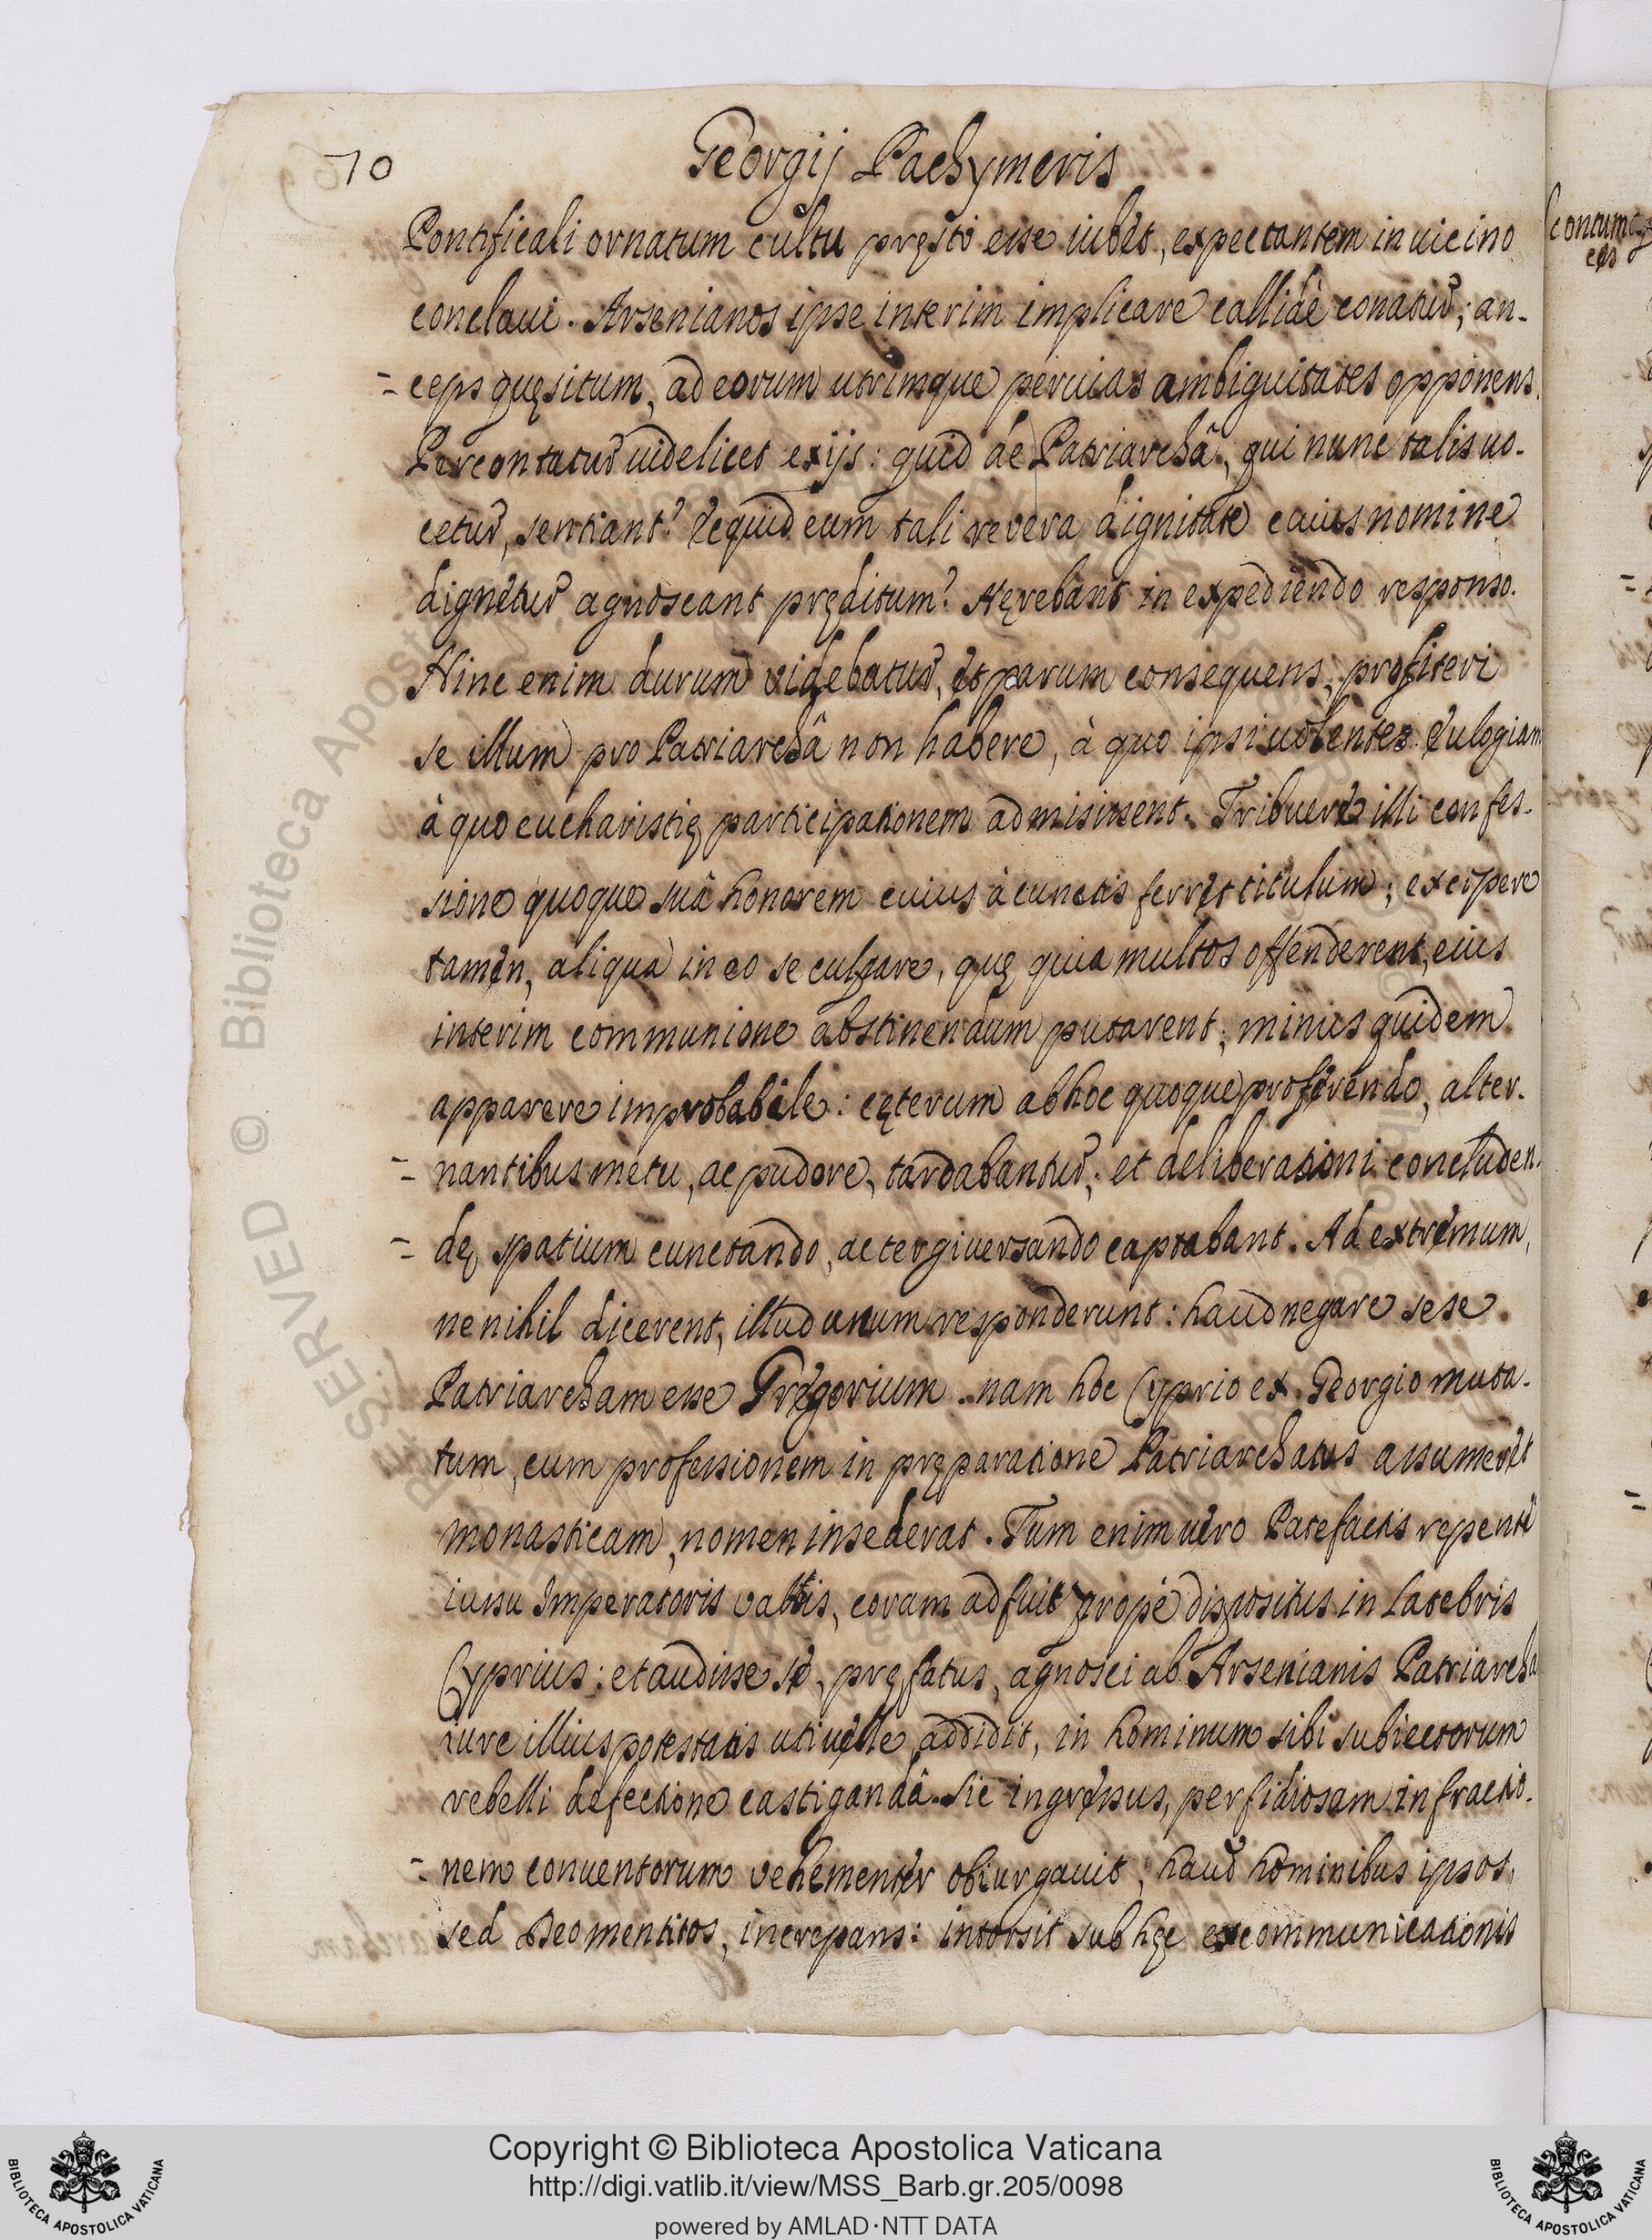 70
Georgij Pachymeris
Pontificali ornatum cultu pręstò esse iubet, expectantem in uicino
conclaui. Arsenianos ipse interim implicare callidè conatur; an-
= ceps quęsitum, ad eorum utrimque peruias ambiguitates opponens.
Percontatur uidelicet ex ijs: quid de Patriarchâ, qui nunc talis uo-
cetur, sentiant? Ecquid eum tali revera dignitate cuius nomine
dignetur agnoscant pręditum? Hęrebant in expediendo responso.
Hinc enim durum videbatur, et parum consequens, profiteri
se illum pro Patriarchâ non habere, à quo ipsi uolentes Eulogiam
à quo eucharistię participationem admisissent. Tribuere illi confes-
sione quoque suâ honorem cuius à cunctis ferret titulum; excipere
tamen, aliqua in eo se culpare, quę quia multos offenderent, eius
interim communione abstinendum putarent; minus quidem
apparere improbabile: cęterum ab hoc quoque proferendo, alter-
= nantibus metu, ac pudore, tardabantur; et deliberationi concluden-
= dę spatium cunctando, ac tergiuersando captabant. Ad extremum,
ne nihil dicerent, illud unum responderunt: haud negare sese
Patriarcham esse Gregorium. nam hoc Cyprio ex Georgio muta-
tum, cum professionem in pręparatione Patriarchatus assumeret
monasticam, nomen insederat. Tum enim uero Patefactis repentè
iussu Imperatoris valuis, coram adfuit propè dispositus in latebris
Cyprius: et audisse se, pręfatus, agnosci ab Arsenianis Patriarcha
iure illius potestatis uti uelle addidit, in hominum sibi subiectorum
rebelli defectione castigandâ. Sic ingressus, perfidiosam infractio-
= nem conuentorum vehementer obiurgauit; haud hominibus ipsos,
sed Deo mentitos, increpans: intorsit sub hęc excommunicationis
Copyright © Biblioteca Apostolica Vaticana
http://digi.vatlib.it/view/MSS_Barb.gr.205/0098
powered by AMLAD·NTT DATA
BIBLIOTECA APOSTOLICA VATICANA
BIBLIOTECA APOSTOLICA VATICANA